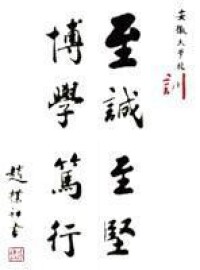 安徽大学校训
至誠至堅
博學篤行
趙樸初書